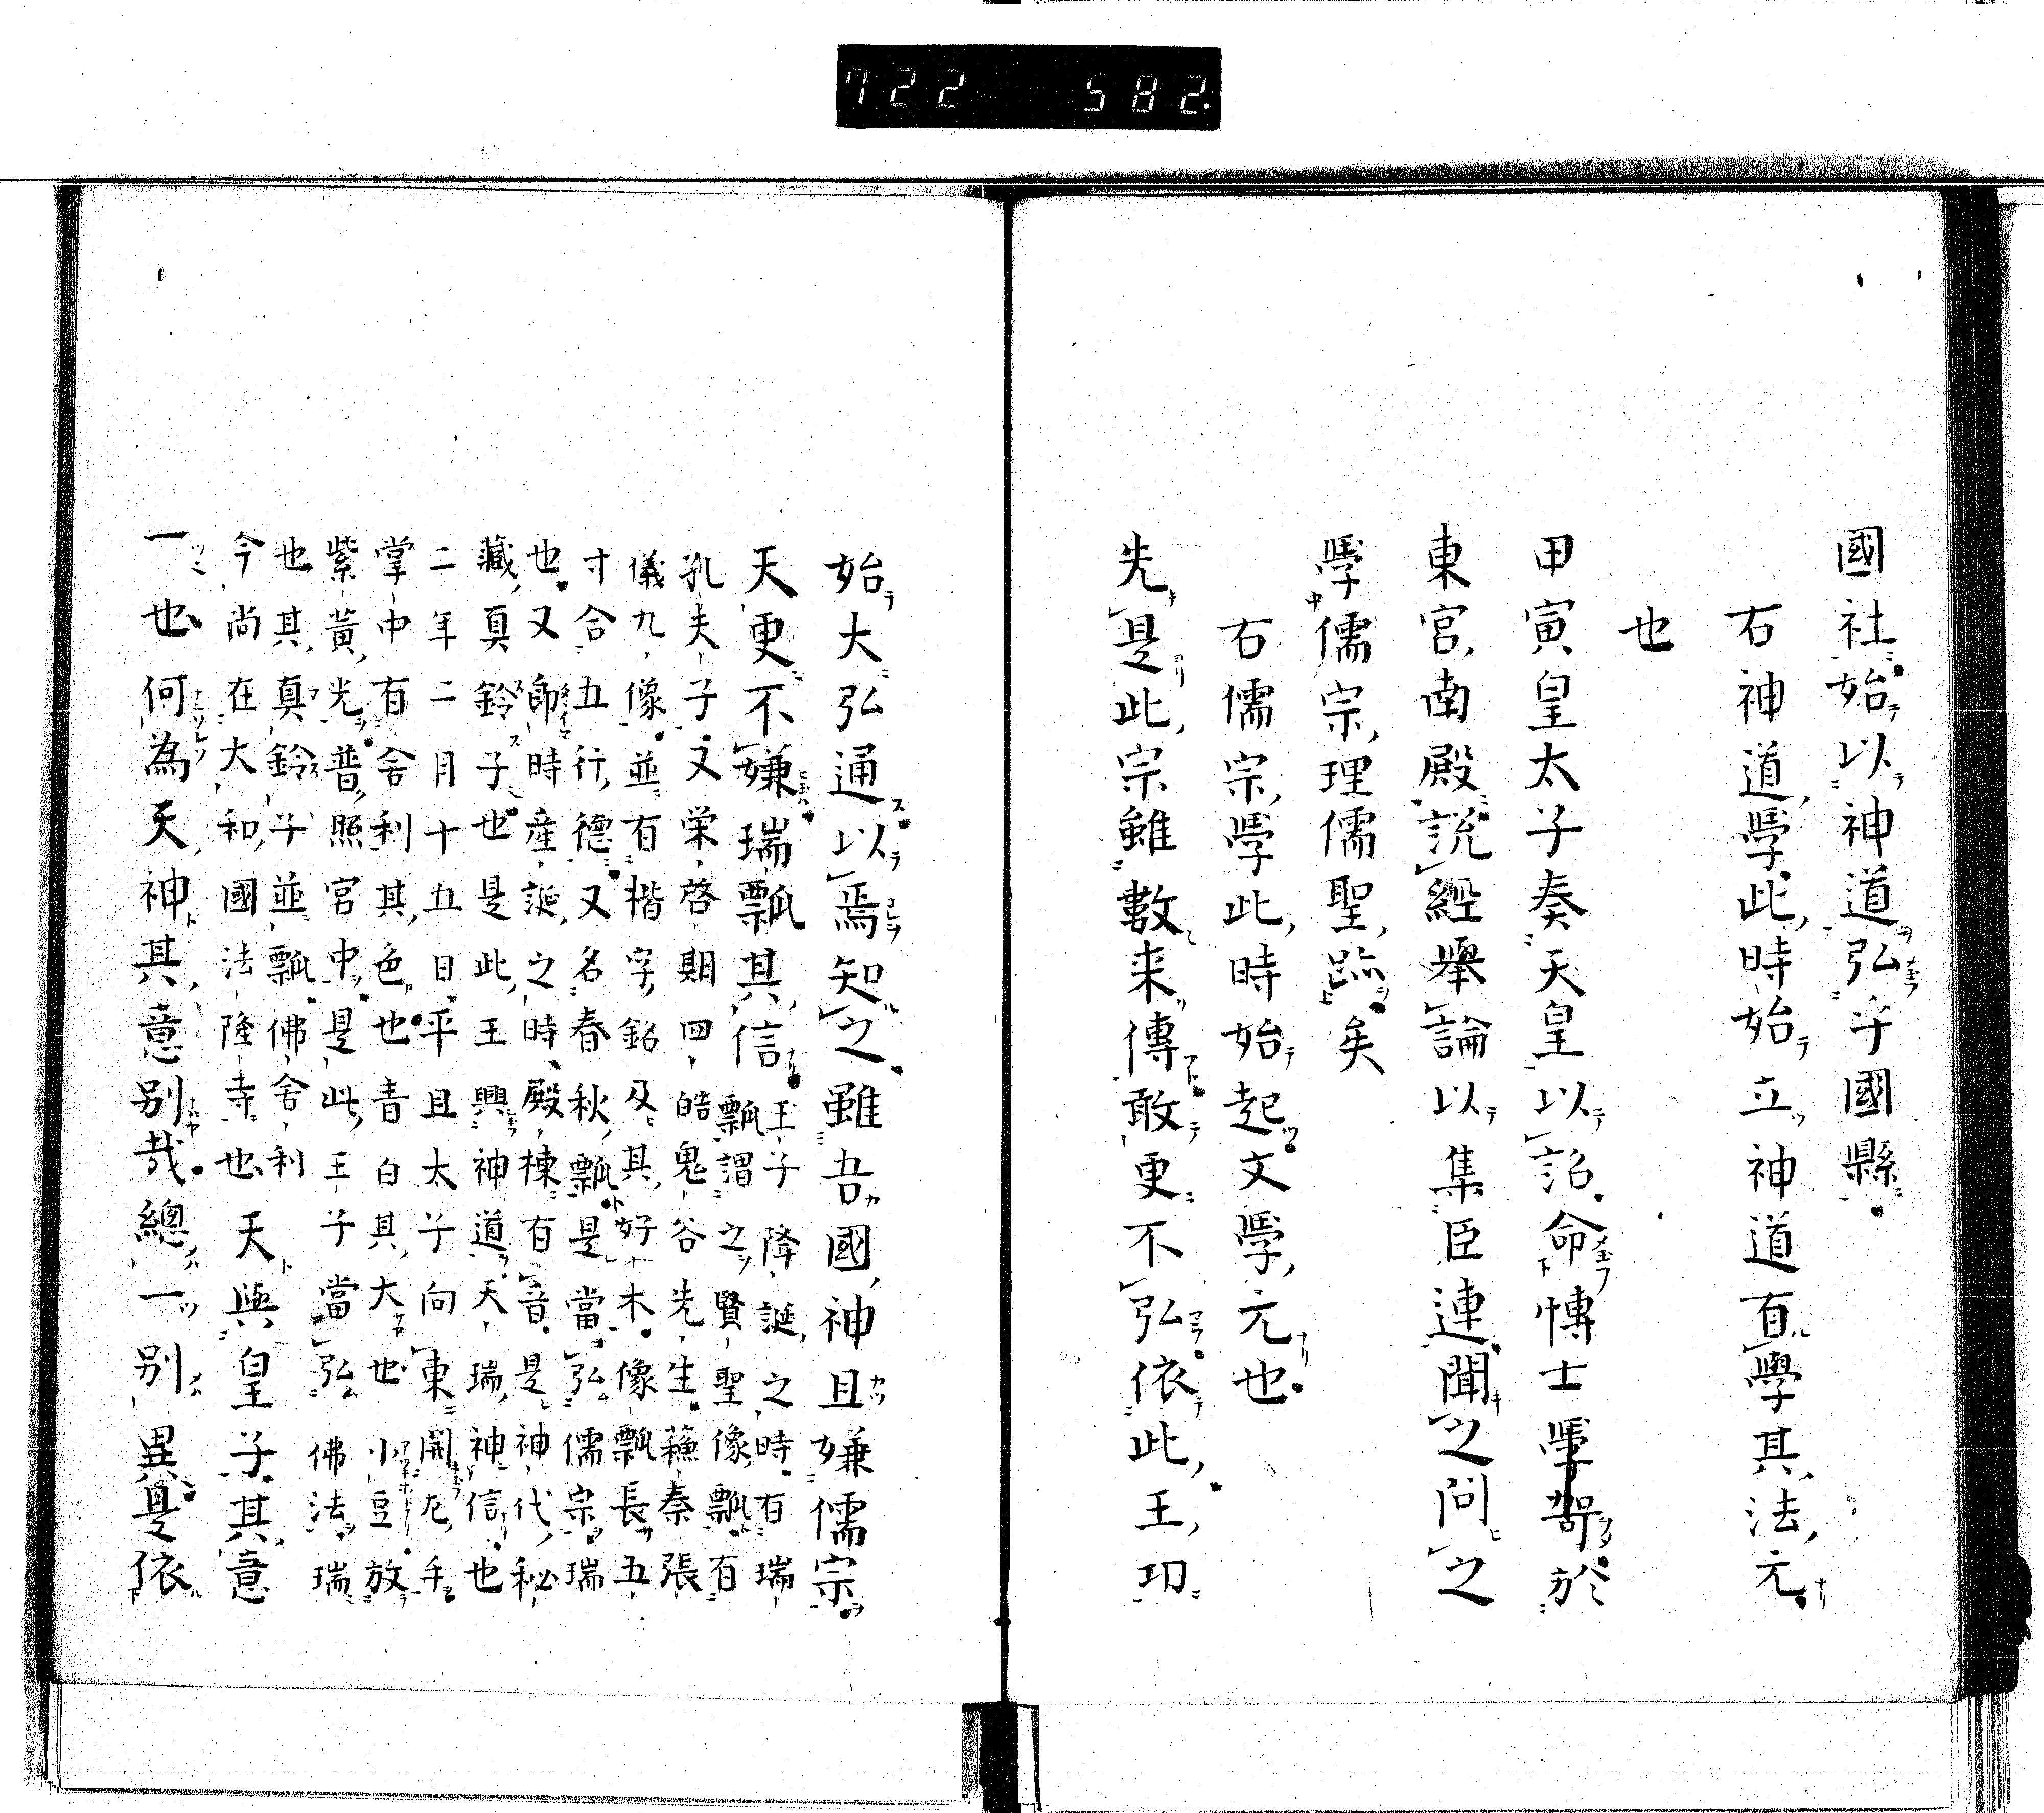 722 582.
國社始以神道弘于國縣
右神道學此時始立神道百學其法元
也
甲寅皇太子奏天皇以詔命博士學哿於
東宮南殿說經舉論以集臣連聞之問之
學儒宗理儒聖跡矣
右儒宗學此時始起文學元也
先是此宗雖數来傳敢更不弘依此王功
始大弘通以焉知之雖吾國神且嫌儒宗
天更不嫌瑞瓢其信
王子降誕之時有瑞
瓢謂之賢聖像瓢有
孔夫子又栄啓期四皓鬼谷先生蘓秦張
儀九像並有楷字銘及其好木像瓢長五
寸合五行德又名春秋瓢是當弘儒宗瑞
也又即時産誕之時殿棟有音是神代秘
藏真鈴子也是此王興神道天瑞神信也
二年二月十五日平旦太子向東開左手
掌中有舍利其色也青白其大也小豆放
紫黃光普照宮中是此王子當弘佛法瑞
也其真鈴子並瓢佛舍利
今尚在大和國法隆寺也
天與皇子其意
一也何為天神其意别哉總一别異是依